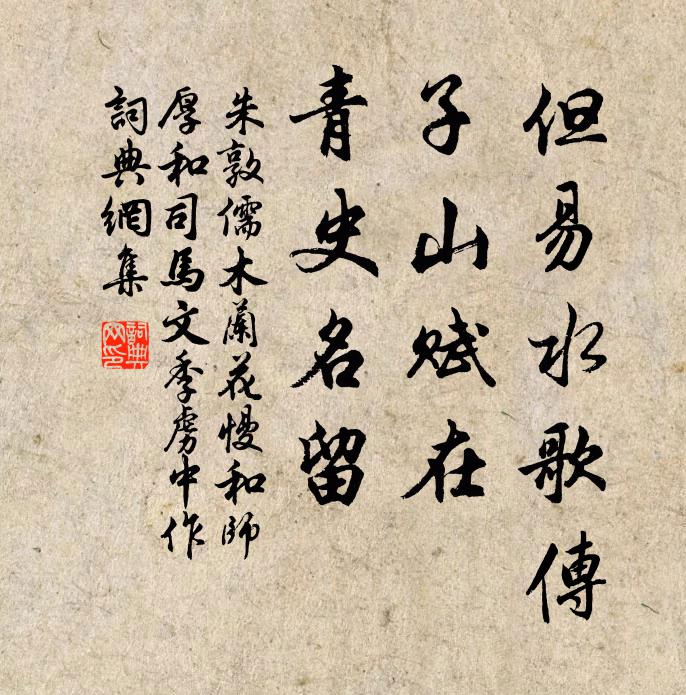 但易水歌傳
子山賦在
青史名留
朱敦儒木蘭花慢和師
厚和司馬文季虜中作
詞典網集
詞典
网印